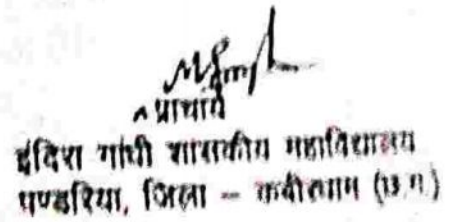 प्राचार्य
इंदिरा गांधी शासकीय महाविद्यालय
पण्डरिया, जिला - कबीरधाम (छ.ग.)